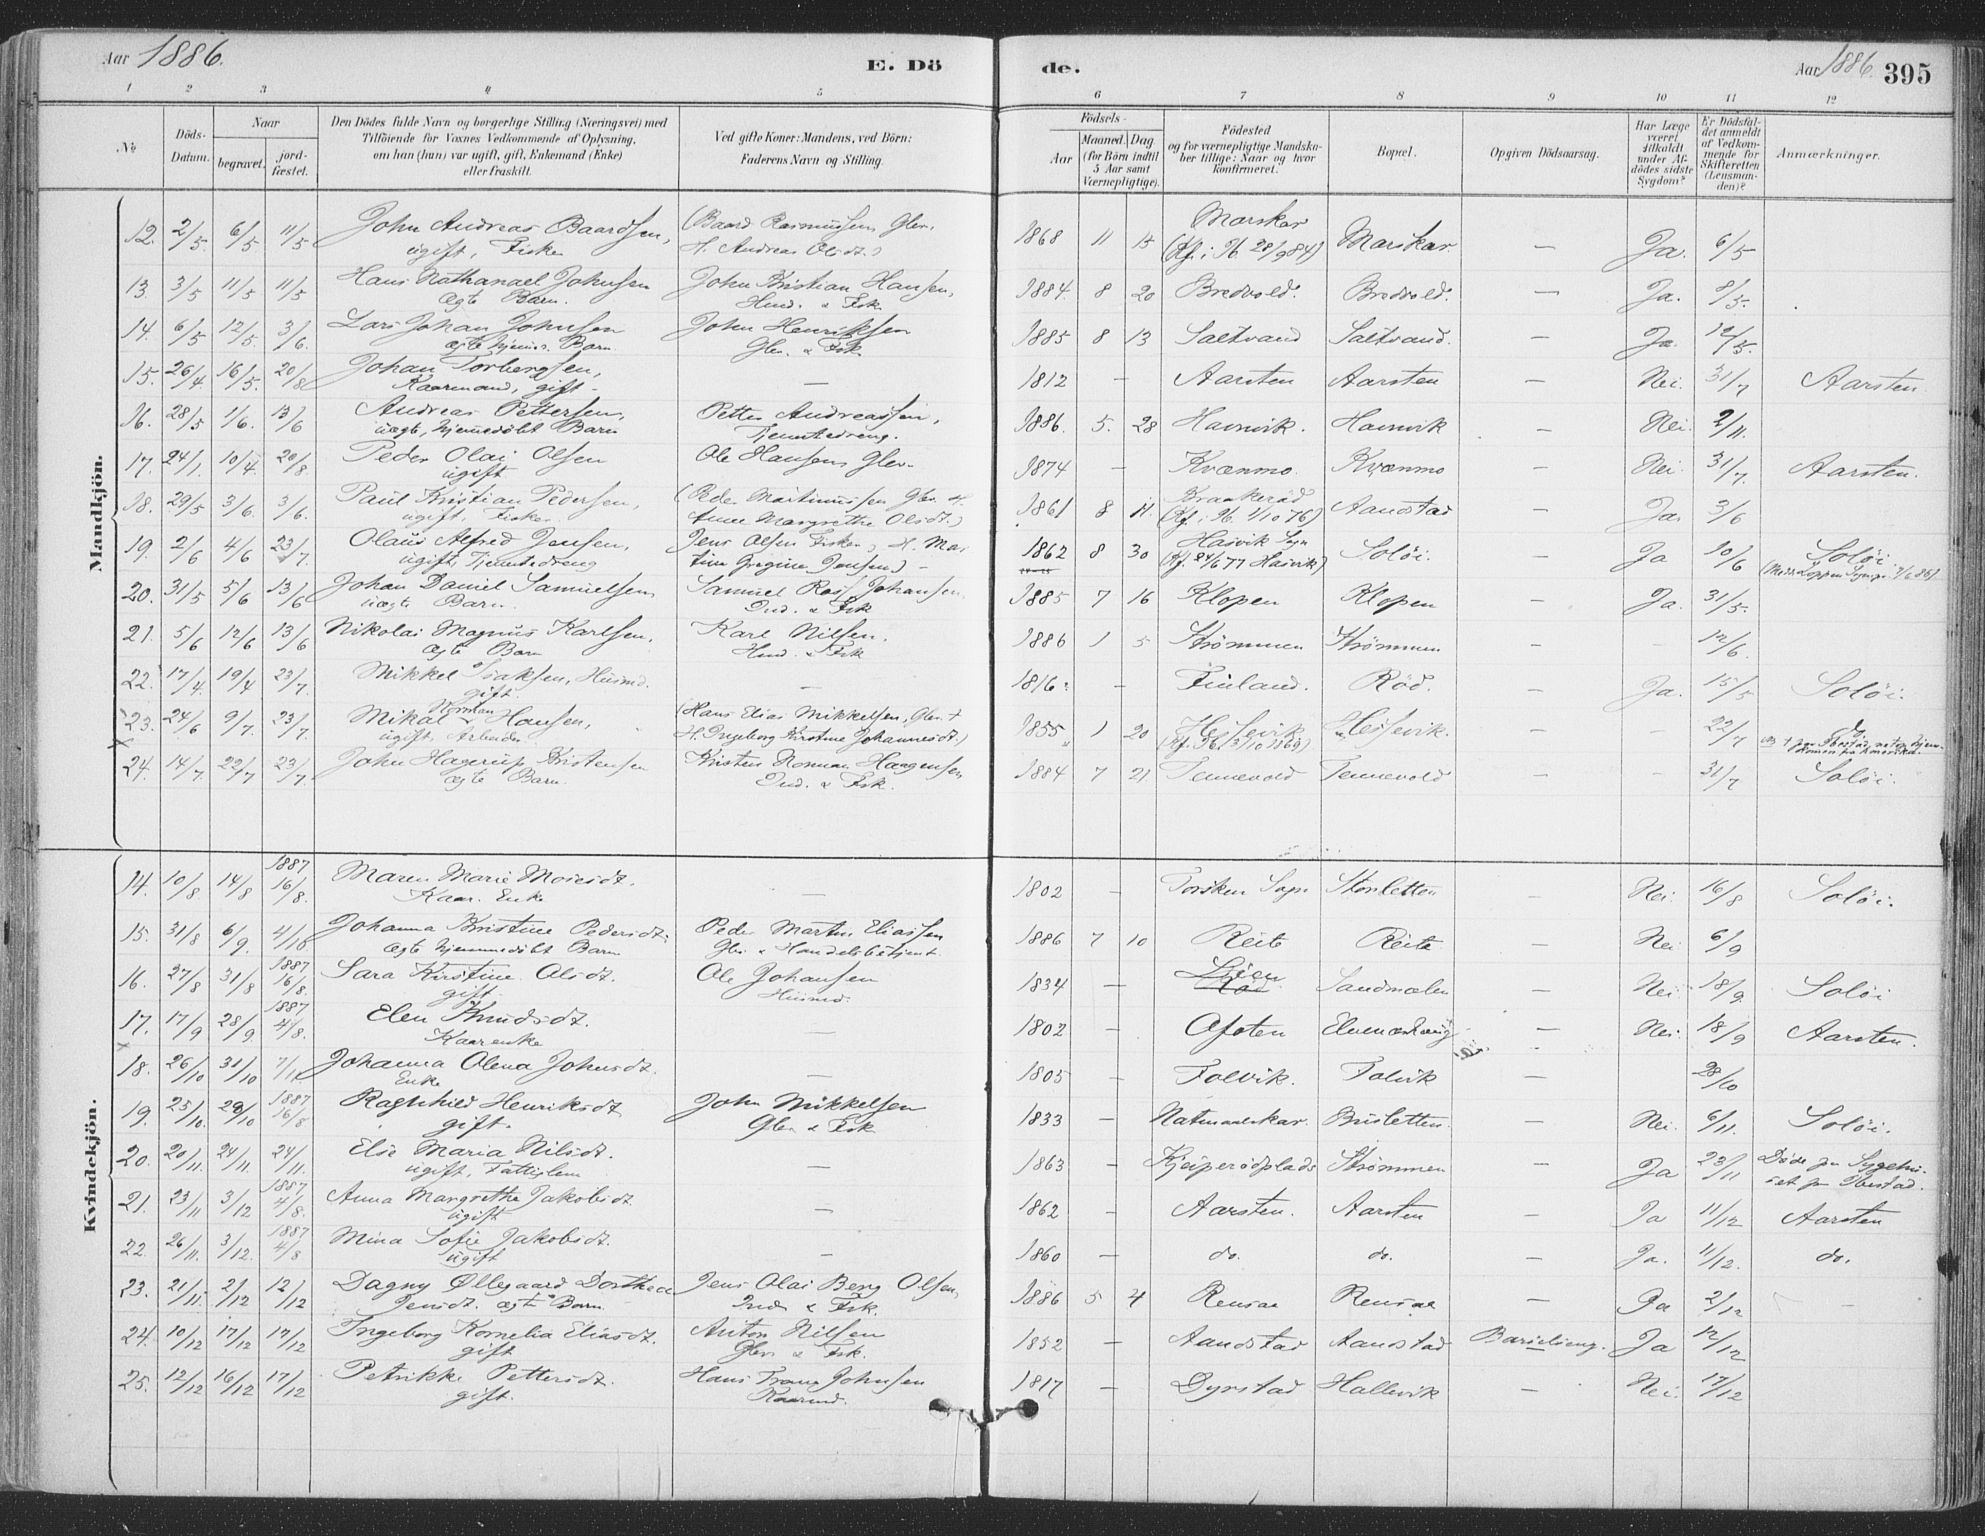 Aar 1886.
E. Dö
de.
Aar 1886. 395
1 2 3 4 5 6 7 8 9 10 11 12
№
Döds-Datum.
Naar
begravet.
jord-fæstet.
Den Dödes fulde Navn og borgerlige Stilling (Næringsvei) med
Tilföiende for Voxnes Vedkommende af Oplysning,
om han (hun) var ugift, gift, Enkemand (Enke)
eller fraskilt.
Ved gifte Koner: Mandens, ved Börn:
Faderens Navn og Stilling.
Födsels-
Aar
Maaned. Dag
(for Börn indtil
5 Aar samt
Værnepligtige).
Födested
og for værnepligtige Mandska-
ber tillige: Naar og hvor
konfirmeret.
Bopæl.
Opgiven Dödsaarsag.
Har Læge
været
tilkaldt
under Af-
dödes sidste
Sygdom?
Er Dödsfal-
det anmeldt
af Vedkom-
mende for
Skifteretten
(Lensman-
den)?
Anmærkninger.
Mandkjön.
12. 2/5. 6/5 11/5 John Andreas Baardsen, (Baard Rasmussen Gbr. 1868 11 15 Marskar Marskar. — Ja. 6/5
ugift, Fisker H. Andrea Olsdt.) (Kf. i Ib. 28/9 84)
13 3/5 11/5 11/5 Hans Nathanael Johnsen John Kristian Hansen, 1884. 8 20 Bredvold. Bredvold. — Ja. 8/5.
ægte Barn. Husd. & Fisk
14. 6/5 12/5. 3/6. Lars Johan Johnsen John Henriksen 1885 8 13 Saltvand Saltvand. — Ja. 12/5.
ægte hjemmed. Barn Gbr. & Fsk
15. 26/4 16/5. 20/8 Johan Torbergsen, — 1812 — Aarsten Aarsten — Nei. 31/7 Aarsten.
Kaarmand, gift.
16. 28/5 1/6. 13/6 Andreas Pettersen, Petter Andreassen, 1886. 5. 28 Havnvik. Havnvik — Nei. 2/11.
uægte, hjemmedøbt Barn Tjenestedreng.
17. 24/1. 10/4. 20/8 Peder Olai Olsen Ole Hansen Gbr. 1874 — Kvænmo. Kvænmo — Nei. 31/7. Aarsten.
ugift
18. 29/5 3/6. 3/6. Paul Kristian Pedersen, (Peder Martinussen Gbr. H. 1861 8 11. Kraakerød Aandstad — Ja. 3/6
ugift, Fisker Anne Margrethe Olsdt.) (Kf. i Ib. 1/10 76)
19. 2/6 4/6 23/7. Olaus Alfred Jensen, Jens Olsen Fisker, H. Mar 1862 8 30 Hasvik Sogn Soløi. — Ja 10/6 Soløi
ugift, Tjenestedreng tine Gregine Jensen) (Kf. 24/6 77 Hasvik)
20. 31/5 5/6 13/6 Johan Daniel Samuelsen Samuel Ross Johansen 1885 7 16 Klopen Klopen — Ja. 31/5.
uægte Barn. Ind. & Fsk
21. 5/6 12/6 13/6 Nikolai Magnus Karlsen, Karl Nilsen. 1886 1 5 Strømmen Strømmen — 12/6.
ægte Barn Husd. & Fsk
22. 17/4. 19/4 23/7. Mikkel Isaksen, Husmd. — 1816. — Finland. Rød. — Ja. 15/5 Soløi.
gift
23. 24/6 9/7. 23/7. Mikal Norman Hansen, (Hans Elias Mikkelsen, Gbr. + 1855 1 20 Hessevik Hessevik. — 22/7 do.
ugift, Arbeider H. Ingeborg Kirstine Johannesdt.) (Kf. Ib. 3/10 1869)
24. 14/7. 22/7 23/7. John Hagerup Kristensen Kristen Norman Haagensen 1884 7 21 Tennevold Tennevold — 31/7 Soløi.
ægte Barn. Ind. & Fsk.
Kvindekjön.
14. 10/8 14/8 1887 16/8. Maren Marie Moiesdt. — 1802 — Torsken Sogn Storsletten — Nei. 16/8 Soløi.
Kaar. Enke
15. 31/8 6/9. 4/10 Johanna Kristine Pedersdt. Peder Martin Eliassen 1886 7 10 Reite Reite — Nei. 6/9
ægte hjemmedøbt Barn Gbr. & Handelsbetjent.
16. 27/8 31/8 1887 16/8. Sara Kirstine Olsdt. Ole Johansen 1834 — Sandmælen — Nei 18/9. Soløi
gift Husmd.
17. 17/9 28/9 1887 4/8. Elen Knudsdt. — 1802 — Ofoten — Nei. 18/9 Aarsten.
Kaarenke
18. 26/10 31/10 7/11 Johanna Olena Johnsdt. — 1805 — Folvik. Folvik — 28/10
Enke
19. 25/10. 29/10 1887 16/8 Ragnhild Henriksdt John Mikkelsen 1833 — Brusletten — Nei. 6/11. Soløi.
gift. Gbr. & Fsk
20. 20/11. 24/11. 24/11. Else Maria Nilsdt. — 1863 — Kjeiperødplads Strømmen — Ja 23/11 Døde paa Sygehu-
ugift, Fattiglem set paa Ibestad.
21. 23/11 3/12 1887 4/8. Anna Margrethe Jakobsdt. — 1862 — Aarsten. Aarsten — Ja 11/12 Aarsten
ugift
22. 26/11. 3/12. 1887 4/8 Mina Sofie Jakobsdt. — 1860 — do. do. — Ja. 11/12. do.
ugift
23. 21/11. 2/12 12/12 Dagny Øllegaard Dorthea Jens Olai Berg Olsen, 1886 5 4 Rensaa Rensaa — Ja 2/12 —
Jensdt. ægte Barn Ind. & Fsk.
24. 10/12 17/12 17/12 Ingeborg Kornelia Eliasdt. Anton Nilsen 1852 — Aandstad Aandstad Barselseng. Ja 12/12
gift Gbr. & Fsk.
25. 12/12 16/12 17/12 Petrikke Pettersdt. Hans Frans Johnsen 1817 — Dyrstad Hallevik — Nei. 17/12
gift. Kaarmd.